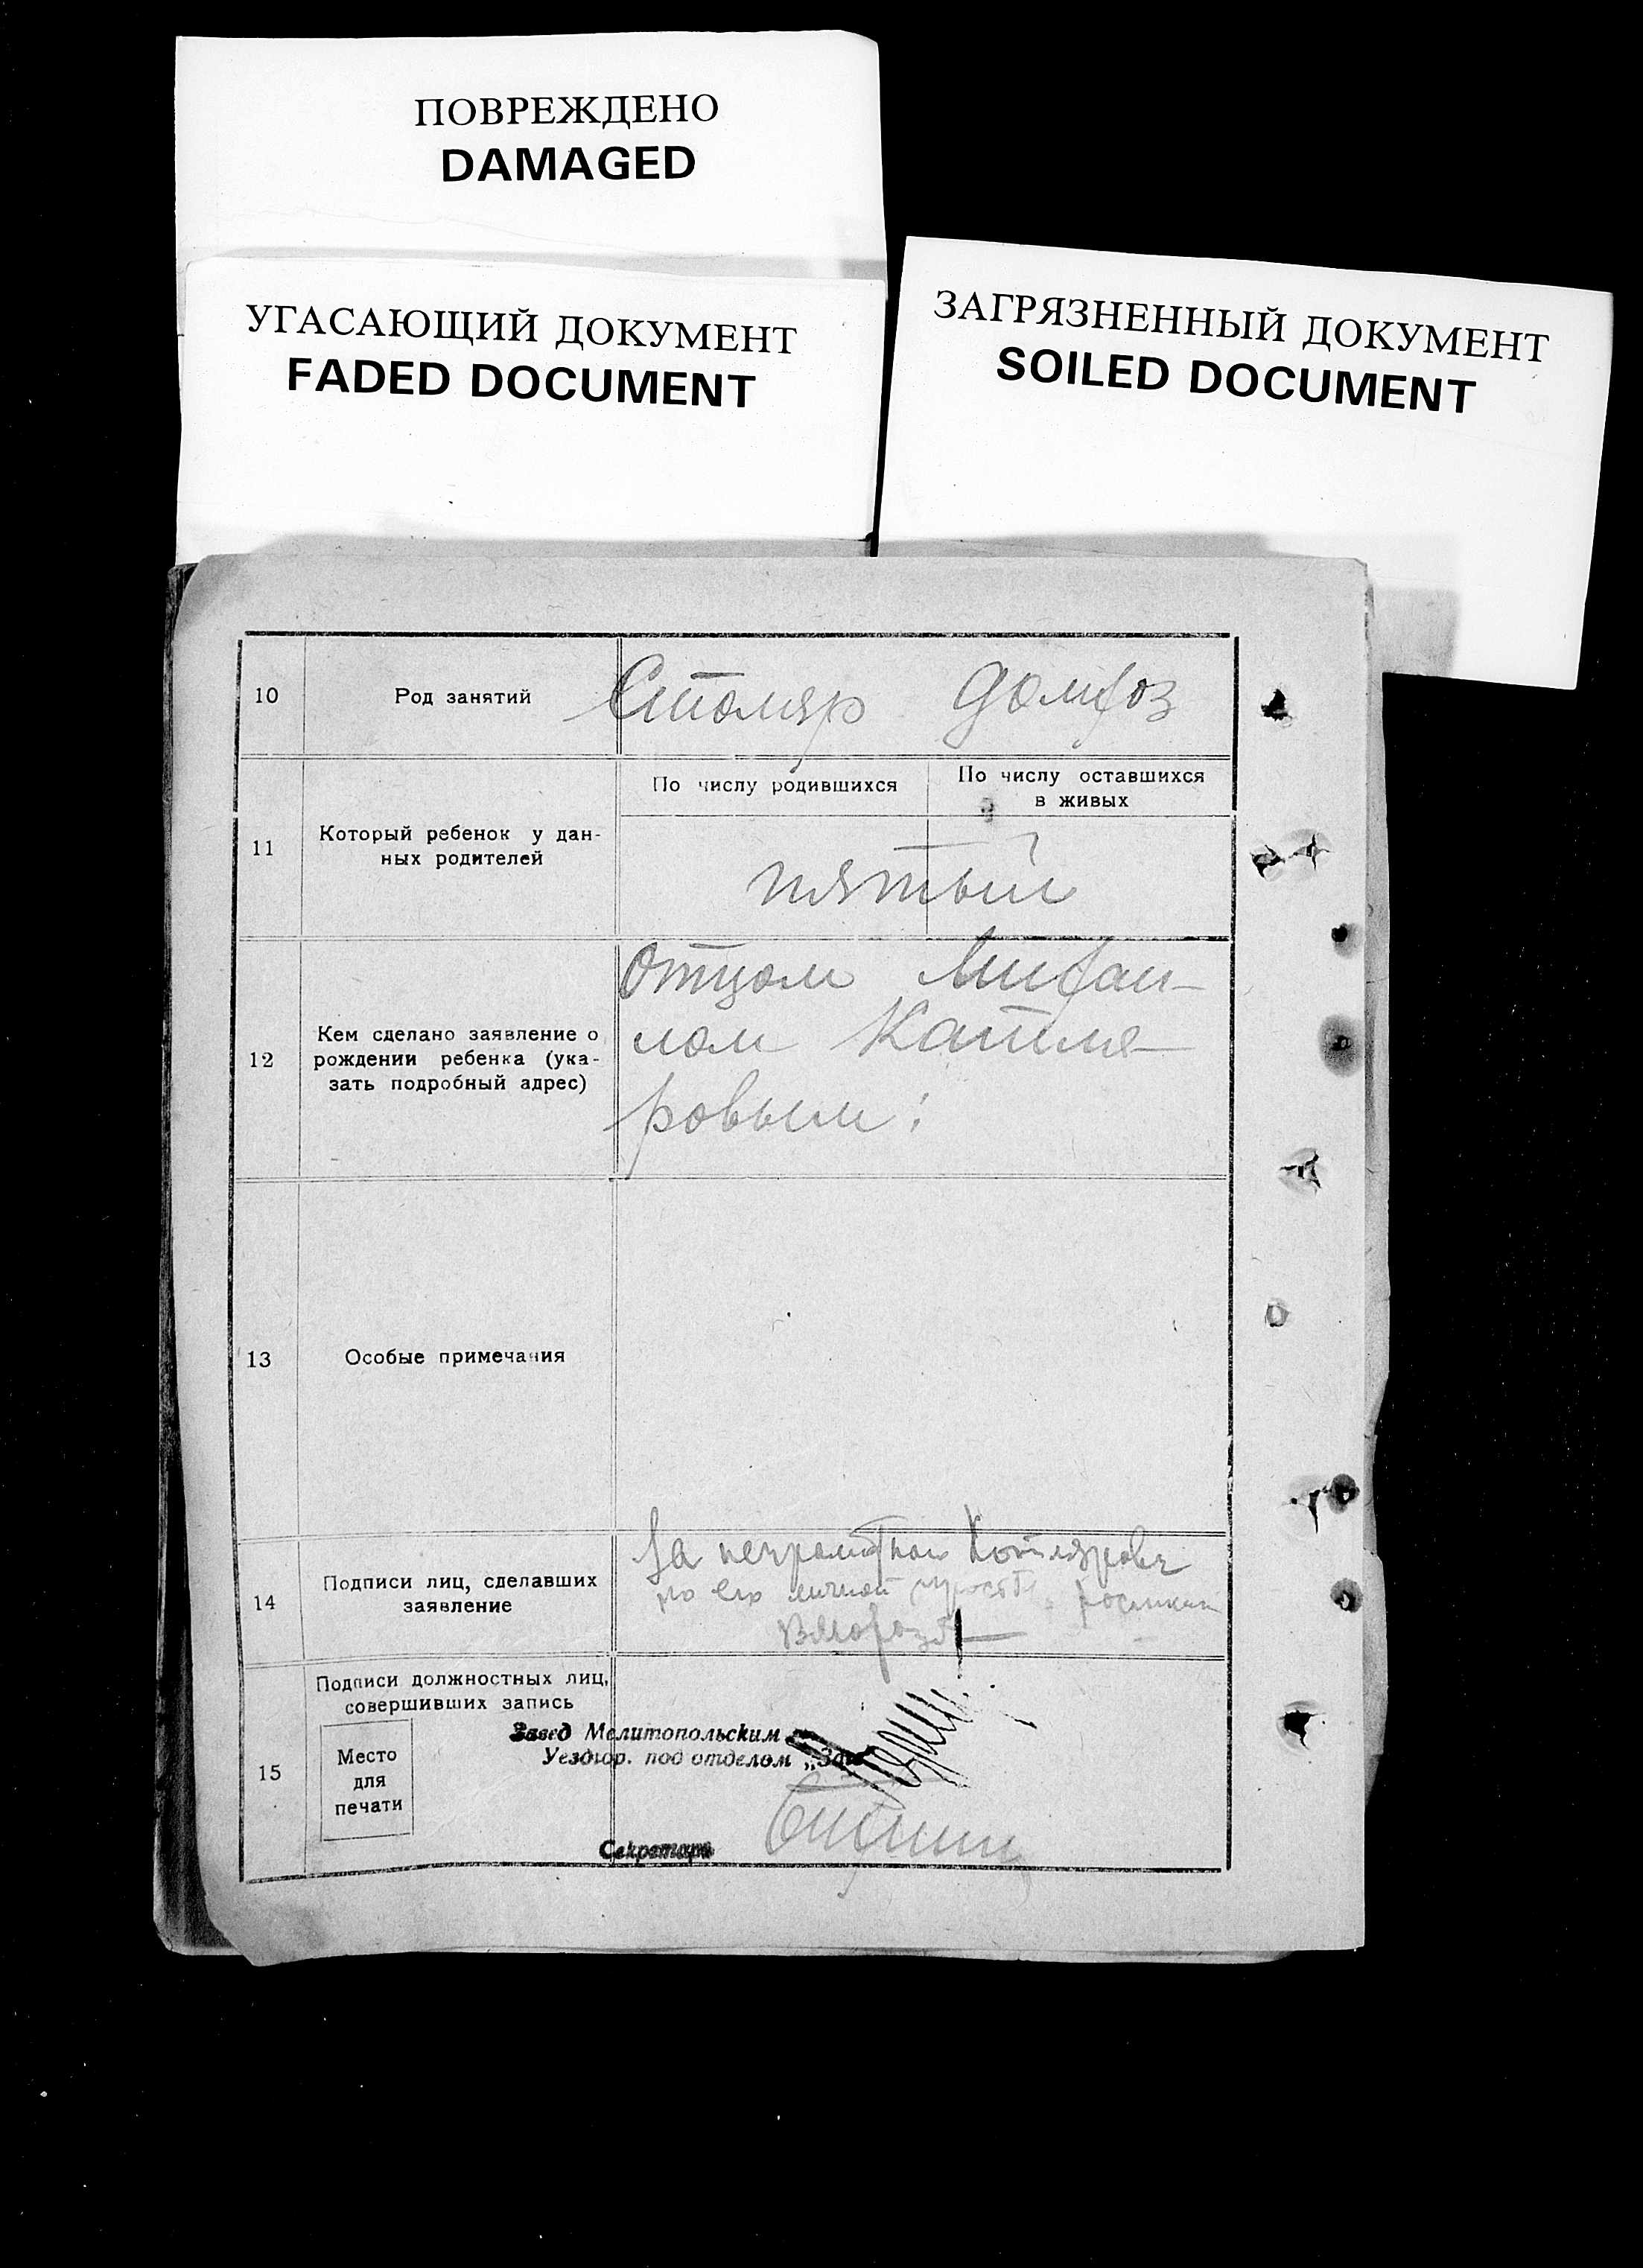 ПОВРЕЖДЕНО
DAMAGED
УГАСАЮЩИЙ ДОКУМЕНТ
FADED DOCUMENT
ЗАГРЯЗНЕННЫЙ ДОКУМЕНТ
SOILED DOCUMENT
10
Род занятий
Столяр домхоз
11
Который ребенок у дан-
ных родителей
По числу родившихся
По числу оставшихся
в живых
пятый
12
Кем сделано заявление о
рождении ребенка (ука-
зать подробный адрес)
Отцом Михаи-
лом Катля-
ровым:
13
Особые примечания
14
Подписи лиц, сделавших
заявление
За неграмотною Котлярова
по его личной просьбе
15
Подписи должностных лиц,
совершивших запись
Место
для
печати
Завед Мелитопольским
Уездюр. под отделом „Заг
Секретарь